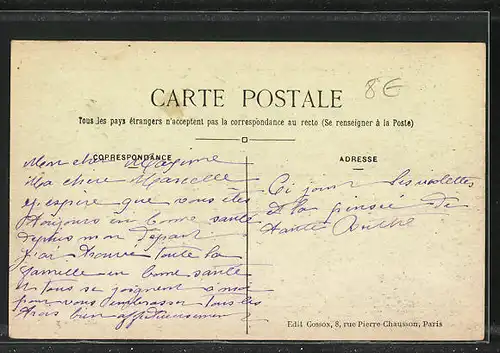 8€
CARTE POSTALE
Tous les pays étrangers n'acceptent pas la correspondance au recto (Se renseigner à la Poste)
CORRESPONDANCE
ADRESSE
Mon cher Maxime
Ma chere Marcelle
j'espere que vous etes
toujours en bonne sante
depuis mon depart
j'ai trouve toute la
famille en bonne sante
tous se joignent a moi
pour vous embrasser tous les
trois bien affectueusement
Ci joint les violettes
et la pensée de
Edit Gossox, 8, rue Pierre-Chausson, Paris